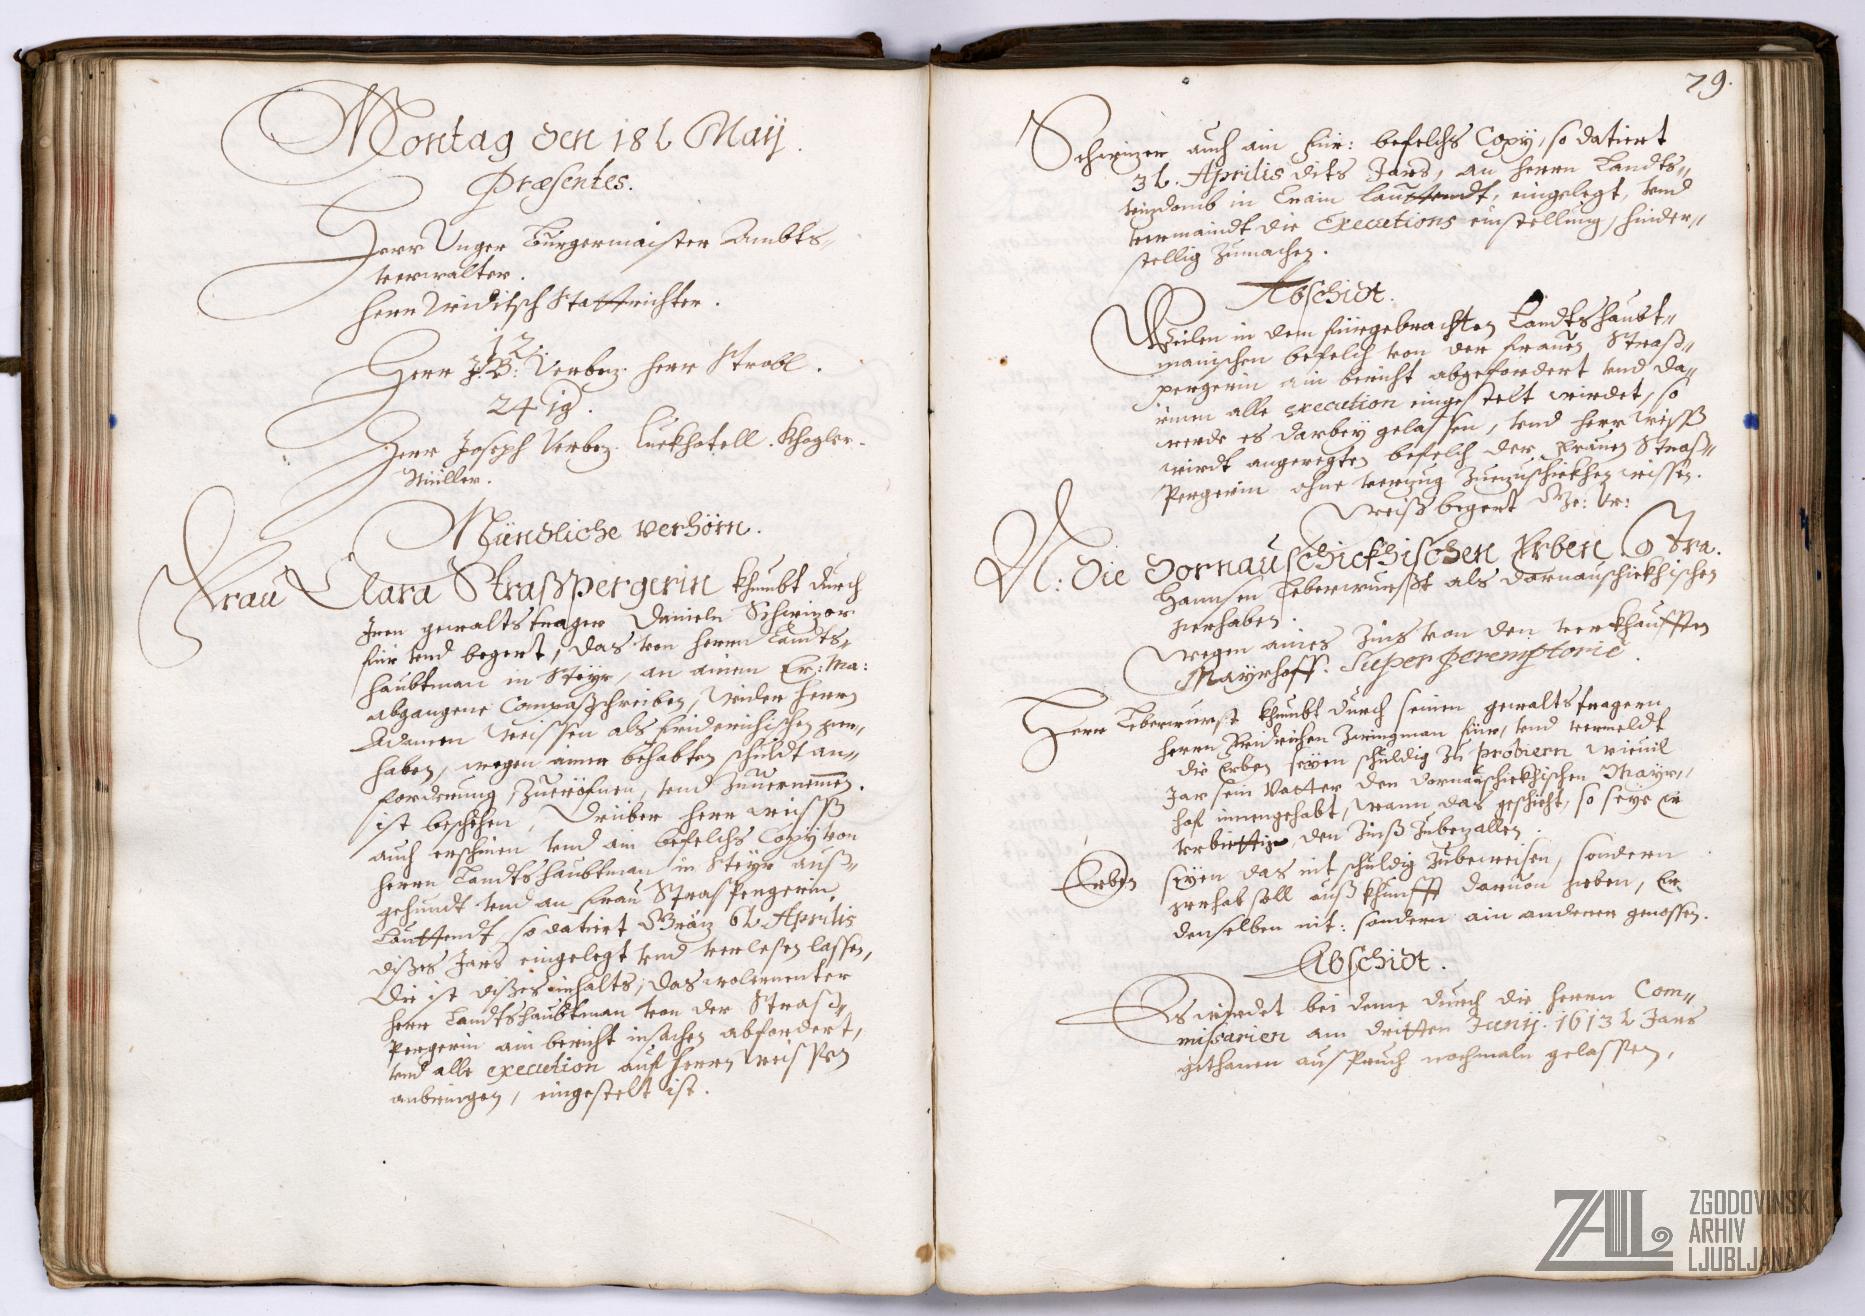 Montag den 18 t Maij.
Præsentes.
Herr Unger Burgermaister Ambts-
verwalter.
Herr Viditsch Stattrichter.
12.
Herr J: B: Verbez. Herr Strobl.
24ig.
Herr Joseph Verbez. Luckhatell. Khogler.
Müller.
Mündliche verhörn.
Frau Clara Straßpergerin khumbt durch
Iren gewaltstrager Danieln Schwizer
für vnd begert, das von herrn Landts-
haubtman in Steyr, an ainen Er: Ma:
abgangene Compaßschreiben, wider herrn
Adamen Weissen als Friderichischen ger-
haben, wegen ainer behabten schuldt an-
forderung, Zueröfnen, vnd Zuuernemen.
ist beschehen, Drüber herr Weiß
auch erschinen vnd ain befelchs Copy von
herrn Landtshaubtman in Steyr auß-
gehundt vnd an Frau Straspergerin
Lauttendt, so datiert Gräz 6 t Aprilis
dißes Jars eingelegt vnd verleßen lassen,
Die ist dißes inhalts, das wolernenter
herr Landtshaubtman von der Straß-
pergerin ain bericht in sachen abfordert,
vnd alle execution auf herrn Weissen
anbringen, eingestelt ist.
79.
Schwizer auch ain Für: befelchs Copy, so datiert
3 t. Aprilis dits Jars, an herrn Landts-
vizdomb in Crain lauttendt, eingelegt, vnd
vermaindt die Executions einstellung, hinder-
stellig Zumachen.
Abschidt.
Weilen in dem fürgebrachten Landtshaubt-
manischen befelch von der Frauen Straß-
pergerin ain bericht abgefordert vnd da-
innen alle execution eingestelt wirdet, so
werde es darbey gelassen, vnd herr Weiß
wirdt angeregten befelch der Frauen Straß-
pergerin ohne verzug Zuezuschickhen wissen.
Weiß begert Ge: Ur:
N: die dornauschickhischen Erben C tra.
Hannsen Leberwurßt als dornauschickhischen
gerhaben.
Wegen aines Zins von den verkhaufften
Mayrhoff. Super peremptorie.
Herr Leberwurst khumbt durch seinen gewaltstragern
herrn Fridrichen Zwingman für, vnd vermeldt
die Erben seyen schuldig zu probiern wieuil
Jar sein Vatter den dornauschickhischen Mayr-
hof inengehabt, wann das geschicht, so seye er
verbiettig, den Zinß Zubezallen.
Erben seyen das nit schuldig Zubeweisen, sondern
gerhab soll außkhunfft daruon geben, Er
denselben nit: sondern ain anderer genossen.
Abschidt.
Es wirdet bei deme durch die herrn Com-
missarien am dritten Junij. 1613 t Jars
gethanen ausspruch nochmaln gelassen,
ZAL
ZGODOVINSKI
ARHIV
LJUBLJANA